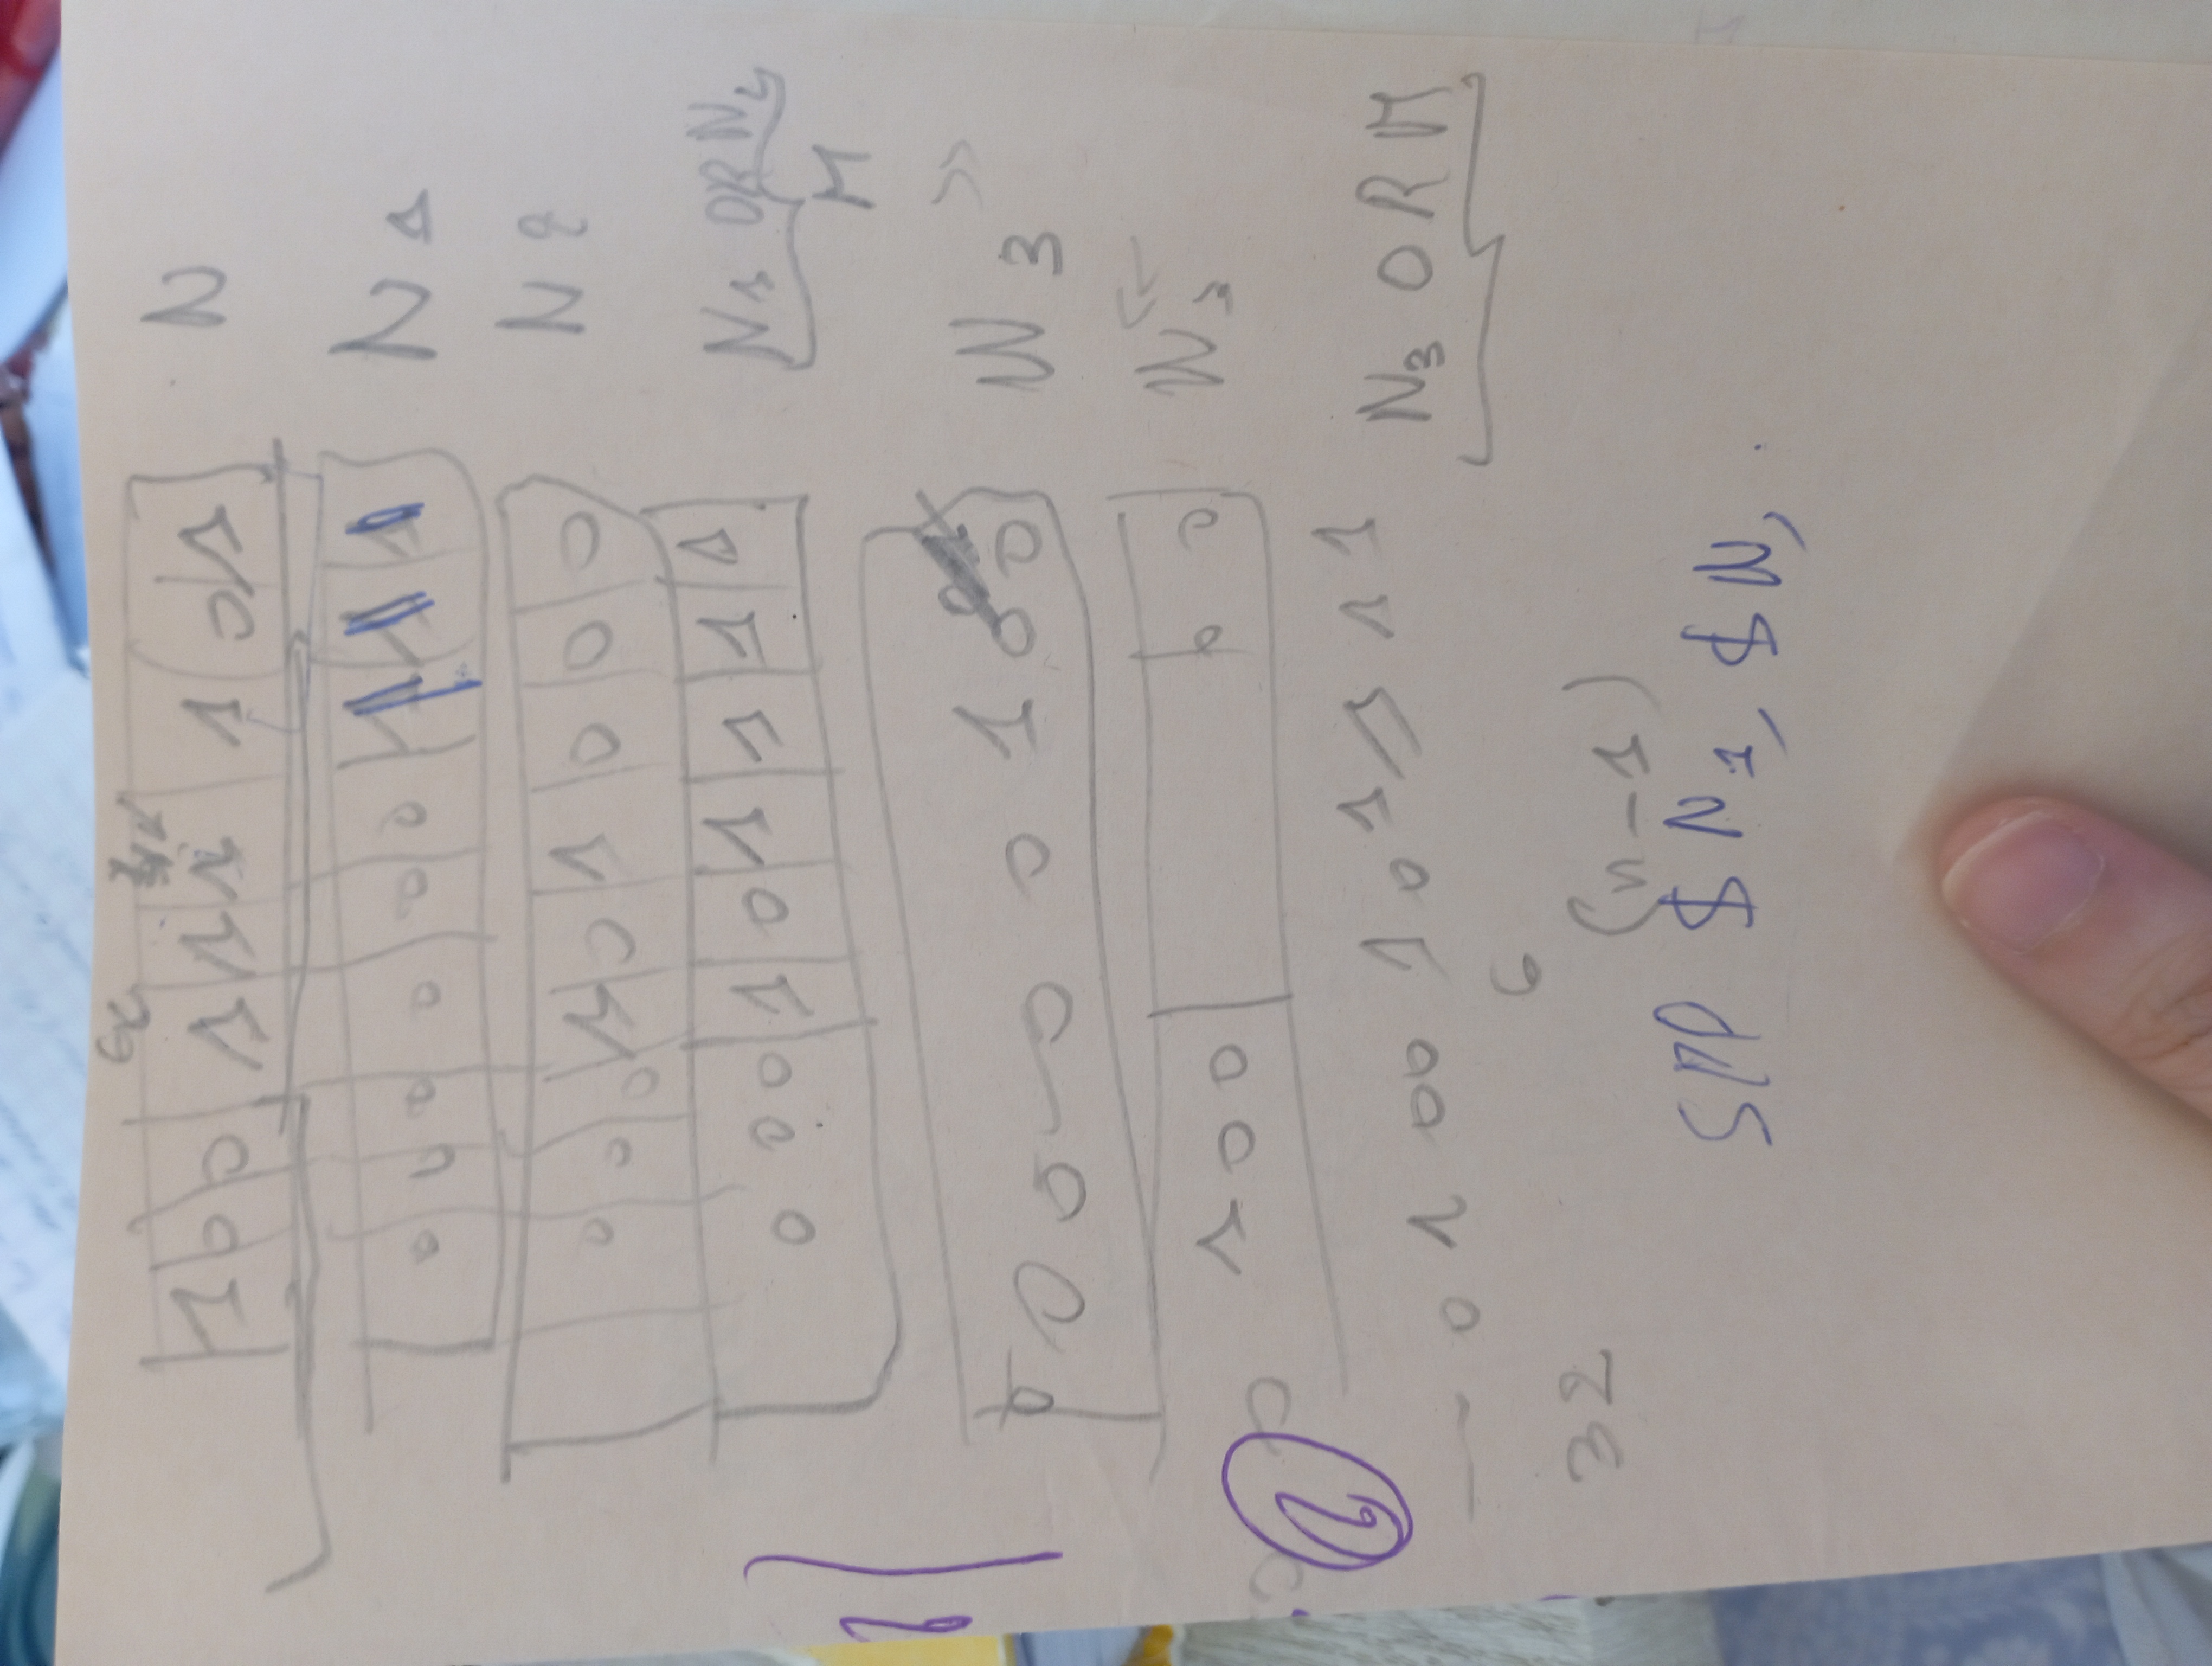 1 0 0 1 1 1 1 0 1 N
0 0 0 0 0 0 1 1 1 N1
0 0 0 1 0 1 0 0 0 N2
0 0 0 1 0 1 1 1 1 N1 OR N2
M
0 0 0 — 0 0 1 0 0 N3 >>
1 0 0 0 0 N3 <<
— 0 1 0 0 1 0 1 1 1 1 N3 OR M
6
32
(n-1)
$N1, $N,